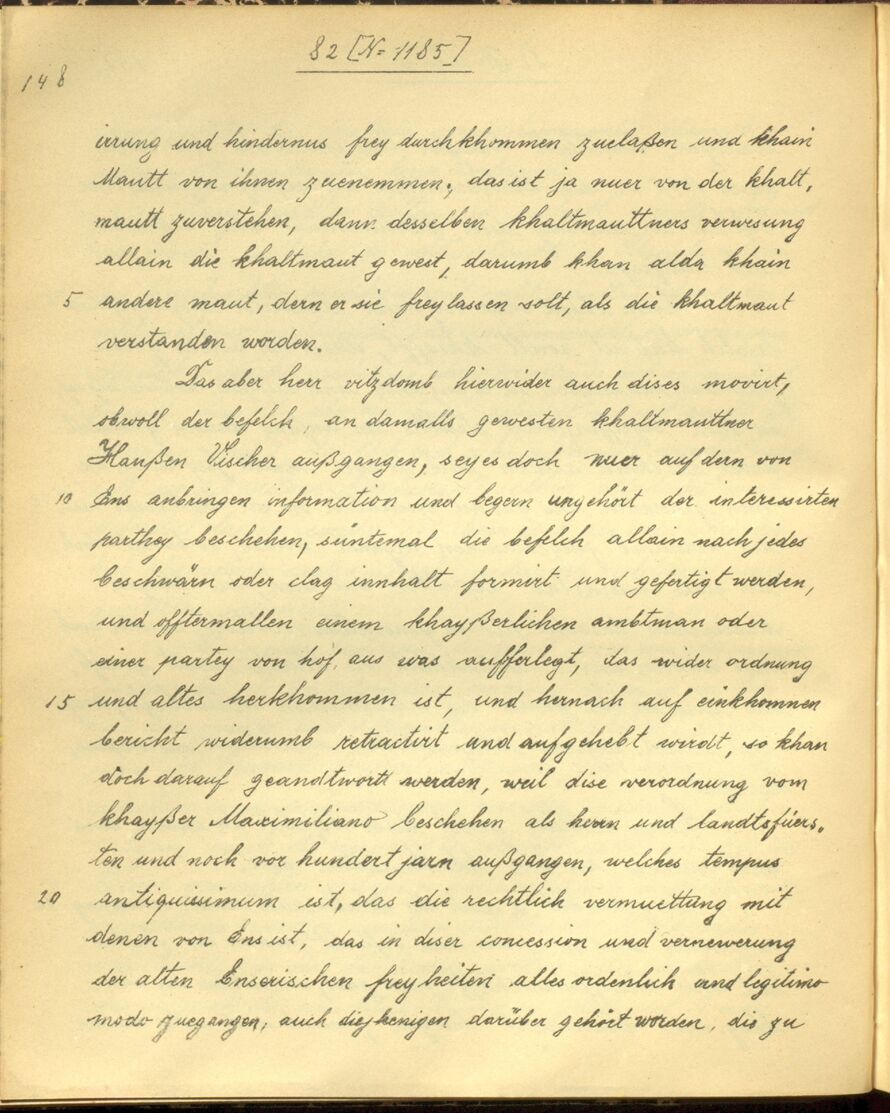 82 [N= 1185]
148
irrung und hindernus frey durchkhommen zuelaßen und khain
Mautt von ihnen zuenemmen., das ist ja nuer von der khalt,
mautt zuverstehen, dann desselben khaltmauttners verwesung
allain die khaltmaut gewest, darumb khan alda khain
5 andere maut, dern er sie freylassen solt, als die khaltmaut
verstanden worden.
Das aber herr vitzdomb hierwider auch dises movirt,
obwoll der befelch, an damalls gewesten khaltmauttner
Hanßen Vischer außgangen, seyes doch nuer auf dern von
10 Ens anbringen information und begern ungehört der interessirten
parthey beschehen, süntemal die befelch allain nach jedes
beschwärn oder clag innhalt formirt und gefertigt werden,
und offtermallen einem khayßerlichen ambtman oder
einer partey von hof aus was aufferlegt, das wider ordnung
15 und altes herkhommen ist, und hernach auf einkhomnen
bericht widerumb retractirt und aufgehebt wirdt, so khan
doch darauf geandtwortt werden, weil dise verordnung vom
khayßer Maximiliano beschehen als herrn und landtsfüers,
ten und noch vor hundert jarn außgangen, welches tempus
20 antiquissimum ist, das die rechtlich vermuettung mit
denen von Ens ist, das in diser concession und vernewerung
der alten Enserischen freyheiten alles ordenlich und legitimo
modo zuegangen, auch diejhenigen darüber gehört worden, die zu